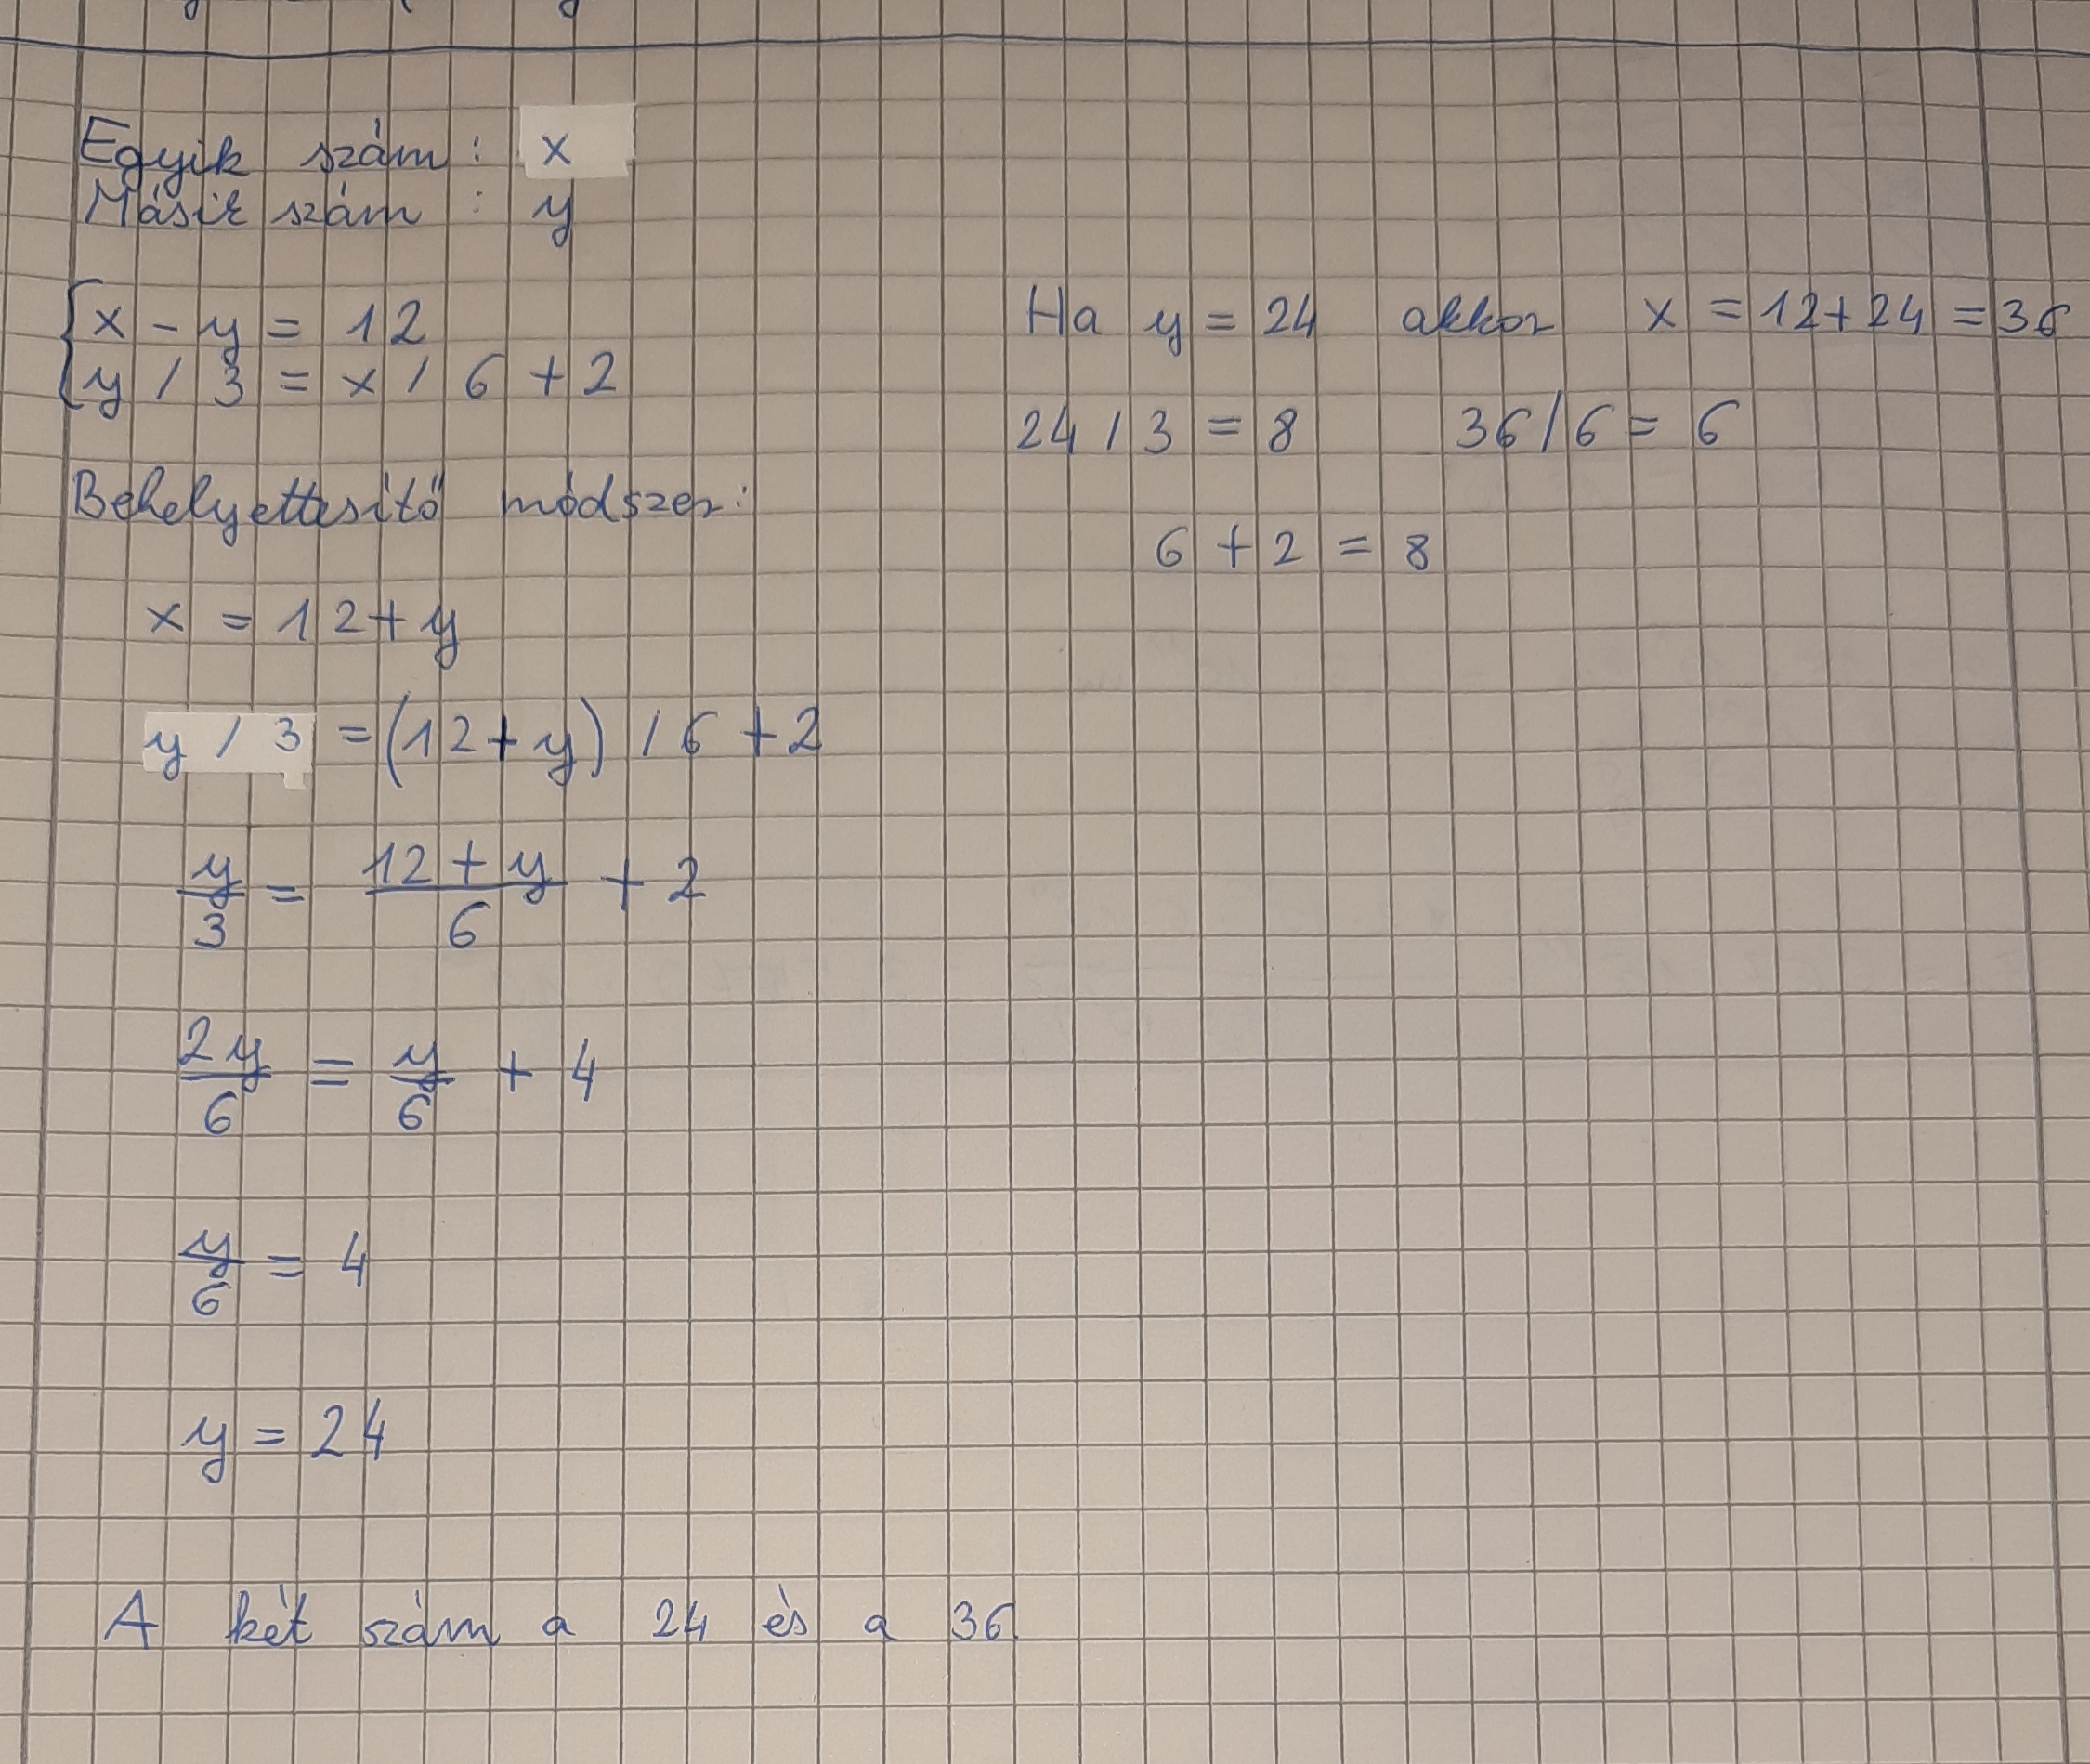 Egyik szám: x
Másik szám: y
x - y = 12
y / 3 = x / 6 + 2
Behelyettesítő módszer:
x = 12 + y
y / 3 = (12 + y) / 6 + 2
y/3 = (12 + y)/6 + 2
2y/6 = y/6 + 4
y/6 = 4
y = 24
Ha y = 24 akkor x = 12 + 24 = 36
24 / 3 = 8 36 / 6 = 6
6 + 2 = 8
A két szám a 24 és a 36